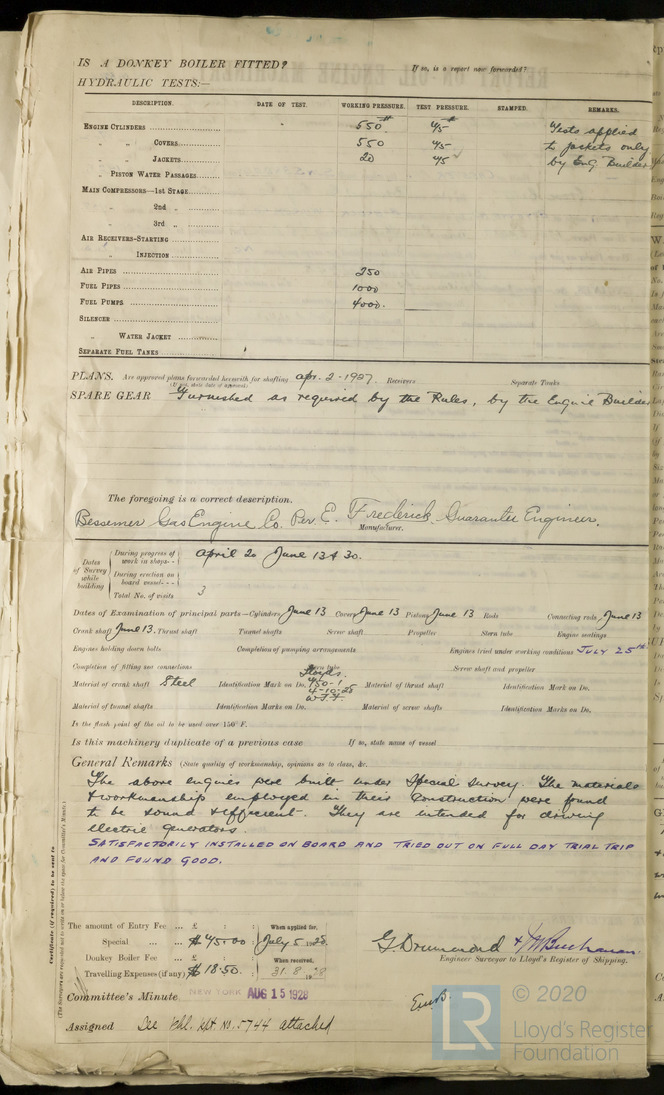 IS A DONKEY BOILER FITTED? If so, is a report now forwarded?
HYDRAULIC TESTS:—
DESCRIPTION. DATE OF TEST. WORKING PRESSURE. TEST PRESSURE. STAMPED. REMARKS.
ENGINE CYLINDERS 550# 45# Tests applied
" " COVERS 550 45 to jackets only
" " JACKETS 20 45 by Eng Builder
" PISTON WATER PASSAGES
MAIN COMPRESSORS—1st STAGE
" 2nd "
" 3rd "
AIR RECEIVERS—STARTING
" INJECTION
AIR PIPES 250
FUEL PIPES 1000
FUEL PUMPS 4000.
SILENCER
" WATER JACKET
SEPARATE FUEL TANKS
PLANS. Are approved plans forwarded herewith for shafting apr. 2-1927. Receivers Separate Tanks
(If not, state date of approval)
SPARE GEAR Furnished as required by the Rules, by the Engine Builder
The foregoing is a correct description,
Bessemer Gas Engine Co. Per. E. Frederick Guarantee Engineer.
Manufacturer.
Dates of Survey while building
During progress of work in shops-- April 20 June 13 & 30.
During erection on board vessel---
Total No. of visits 3
Dates of Examination of principal parts—Cylinders June 13 Covers June 13 Pistons June 13 Rods Connecting rods June 13
Crank shaft June 13. Thrust shaft Tunnel shafts Screw shaft Propeller Stern tube Engine seatings
Engines holding down bolts Completion of pumping arrangements Engines tried under working conditions JULY 25th
Completion of fitting sea connections Stern tube Screw shaft and propeller
Material of crank shaft Steel Identification Mark on Do. Lloyds 450-1 4-10-28 W.J.F. Material of thrust shaft Identification Mark on Do.
Material of tunnel shafts Identification Marks on Do. Material of screw shafts Identification Marks on Do.
Is the flash point of the oil to be used over 150° F.
Is this machinery duplicate of a previous case If so, state name of vessel
General Remarks (State quality of workmanship, opinions as to class, &c.
The above engines were built under Special Survey. The materials
& workmanship employed in their construction were found
to be sound & efficient. They are intended for driving
electric generators.
SATISFACTORILY INSTALLED ON BOARD AND TRIED OUT ON FULL DAY TRIAL TRIP
AND FOUND GOOD.
Certificate (if required) to be sent to
(The Surveyors are requested not to write on or below the space for Committee's Minute.)
The amount of Entry Fee ... £ : : When applied for,
Special ... ... $ 45.00 : July 5 1928.
Donkey Boiler Fee ... £ : : When received,
Travelling Expenses (if any) $ 18.50. : 31.8.1928
G. Drummond & J.W. Buchanan.
Engineer Surveyor to Lloyd's Register of Shipping.
Committee's Minute NEW YORK AUG 15 1928
Assigned See Phl. Rpt. No. 5744 attached
LR
© 2020
Lloyd's Register
Foundation